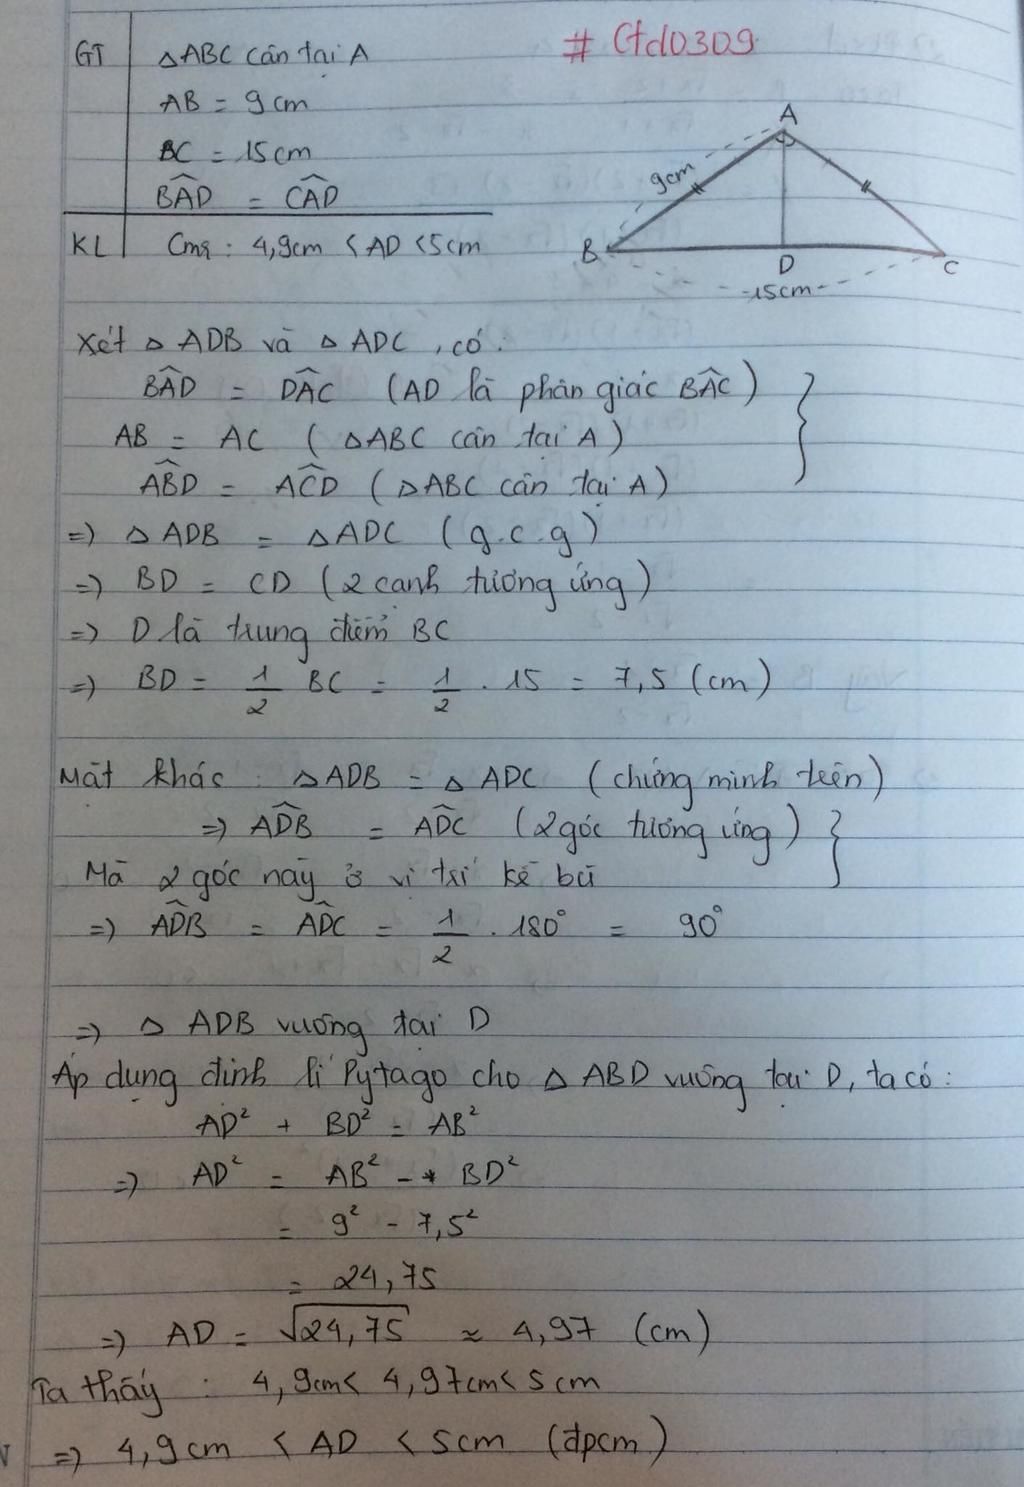 GT △ABC cân tại A
# Ctd0309
AB = 9cm
BC = 15cm
BAD̂ = CAD̂
KL Cmr : 4,9cm < AD < 5cm
A
9cm
B
D
C
15cm
Xét △ ADB và △ ADC , có :
BÂD = DÂC (AD là phân giác BÂC)
AB = AC ( △ABC cân tại A )
AB̂D = AĈD ( △ABC cân tại A )
=> △ ADB = △ADC ( g.c.g )
=> BD = CD ( 2 cạnh tương ứng )
=> D là trung điểm BC
=> BD = 1/2 BC = 1/2 . 15 = 7,5 (cm)
Mặt khác : △ADB = △ ADC ( chứng minh trên )
=> AD̂B = AD̂C ( 2 góc tương ứng )
Mà 2 góc này ở vị trí kề bù
=> AD̂B = AD̂C = 1/2 . 180° = 90°
=> △ ADB vuông tại D
Áp dụng định lí Pytago cho △ ABD vuông tại D, ta có :
AD² + BD² = AB²
=> AD² = AB² - BD²
= 9² - 7,5²
= 24,75
=> AD = √24,75 ≈ 4,97 (cm)
Ta thấy : 4,9cm < 4,97cm < 5cm
=> 4,9cm < AD < 5cm (đpcm)